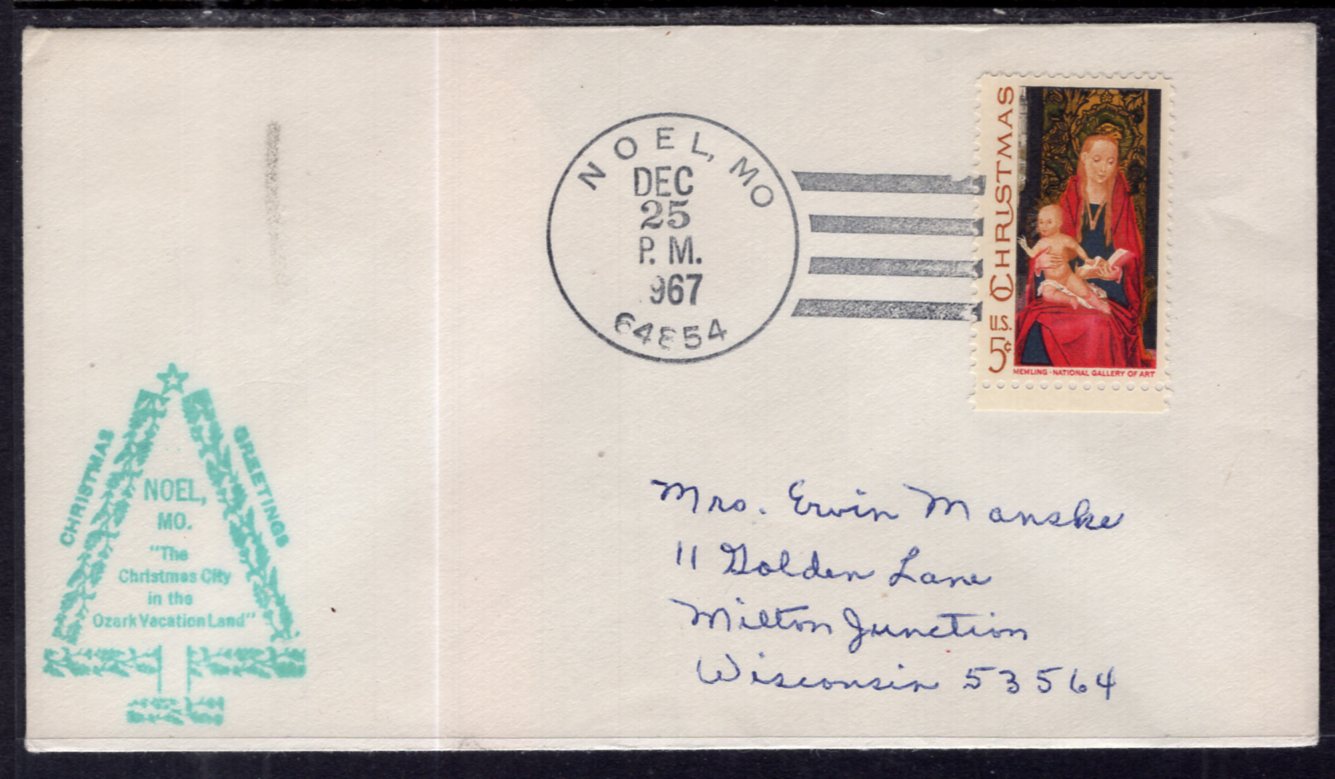 NOEL, MO
DEC
25
P. M.
1967
64854
CHRISTMAS
U.S.
5¢
MEMLING · NATIONAL GALLERY OF ART
CHRISTMAS
GREETINGS
NOEL,
MO.
"The
Christmas City
in the
Ozark Vacation Land"
Mrs. Ervin Manske
11 Golden Lane
Milton Junction
Wisconsin 53564